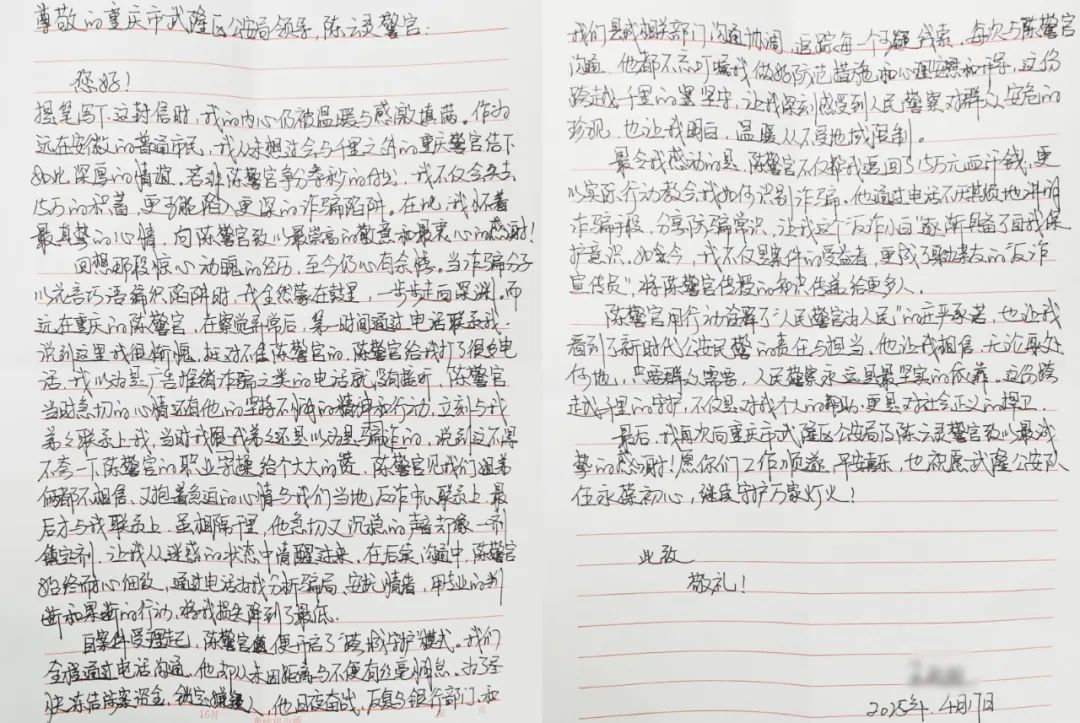 尊敬的重庆市武隆区公安局领导,陈云灵警官:
您好!
提笔写下这封信时,我的内心仍被温暖与感激填满。作为
远在安徽的普通市民,我从未想过会与千里之外的重庆警官结下
如此深厚的情谊。若非陈警官争分夺秒的付出,我不仅会失去
15万的积蓄,更可能陷入更深的诈骗陷阱。在此,我怀着
最真挚的心情,向陈警官致以最崇高的敬意和最衷心的感谢!
回想那段惊心动魄的经历,至今仍心有余悸。当诈骗分子
以花言巧语编织陷阱时,我全然蒙在鼓里,一步步走向深渊。而
远在重庆的陈警官,在察觉异常后,第一时间通过电话联系我.
说到这里我很惭愧,挺对不住陈警官的,陈警官给我打了很多电
话,我以为是广告推销诈骗之类的电话就没有接听,陈警官
当时急切的心情还有他的坚持不懈的精神和行动,立刻与我
弟弟联系上我,当时我跟我弟弟还是以为是骗诈的,说到这不得
不夸一下陈警官的职业守操给个大大的赞,陈警官见我们姐弟
俩都不相信,又抱着急迫的心情与我们当地反诈中心联系上,最
后才与我联系上.虽相隔千里,他急切又沉稳的声音却像一剂
镇定剂,让我从迷惑的状态中清醒过来,在后续沟通中,陈警官
始终耐心细致,通过电话为我分析骗局、安抚情绪,用专业的判
断和果断的行动,将我损失降到了最低.
自案件受理起,陈警官便开启了"跨域守护"模式。我们
全程通过电话沟通,他却从未因距离与不便有丝毫懈怠。为了尽
快冻结涉案资金,锁定嫌疑人,他日夜奋战,反复与银行部门、和
16开
我们县城相关部门沟通协调,追踪每一个可疑线索,每次与陈警官
沟通,他都不忘叮嘱我做好防范措施和心理安慰和开导,这份
跨越千里的坚守,让我深刻感受到人民警察对群众安危的
珍视,也让我明白,温暖从不受地域限制。
最令我感动的是,陈警官不仅帮我追回了15万元血汗钱,更
以实际行动教会我如何识别诈骗。他通过电话不厌其烦地讲明
诈骗手段,分享防骗常识,让我这个"反诈小白"逐渐具备了自我保
护意识,如今,我不仅是案件的受益者,更成了亲朋友的"反诈
宣传员",将陈警官传授的知识传递给更多人。
陈警官用行动诠释了"人民警官为人民"的庄严承诺,也让我
看到了新时代公安民警的责任与担当,他让我相信,无论身处
何地,只要群众需要,人民警察永远是最坚实的依靠。这份跨
越千里的守护,不仅是对我个人的帮助,更是对社会正义的捍卫.
最后,我再次向重庆市武隆区公安局及陈云灵警官致以最诚
挚的感谢!愿你们工作顺遂、平安喜乐,也祝愿武隆公安队
伍永葆初心,继续守护万家灯火!
此致
敬礼!
2025年4月17日